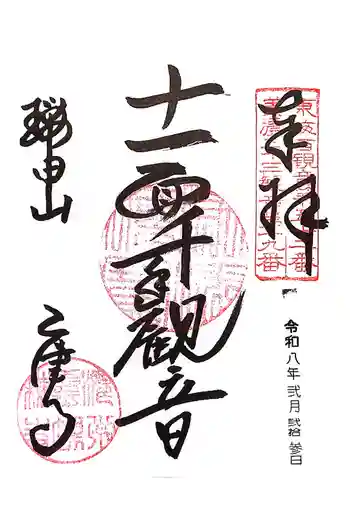 奉拝
令和八年弐月弐拾参日
十一面千手観音
瑞甲山
乙津寺